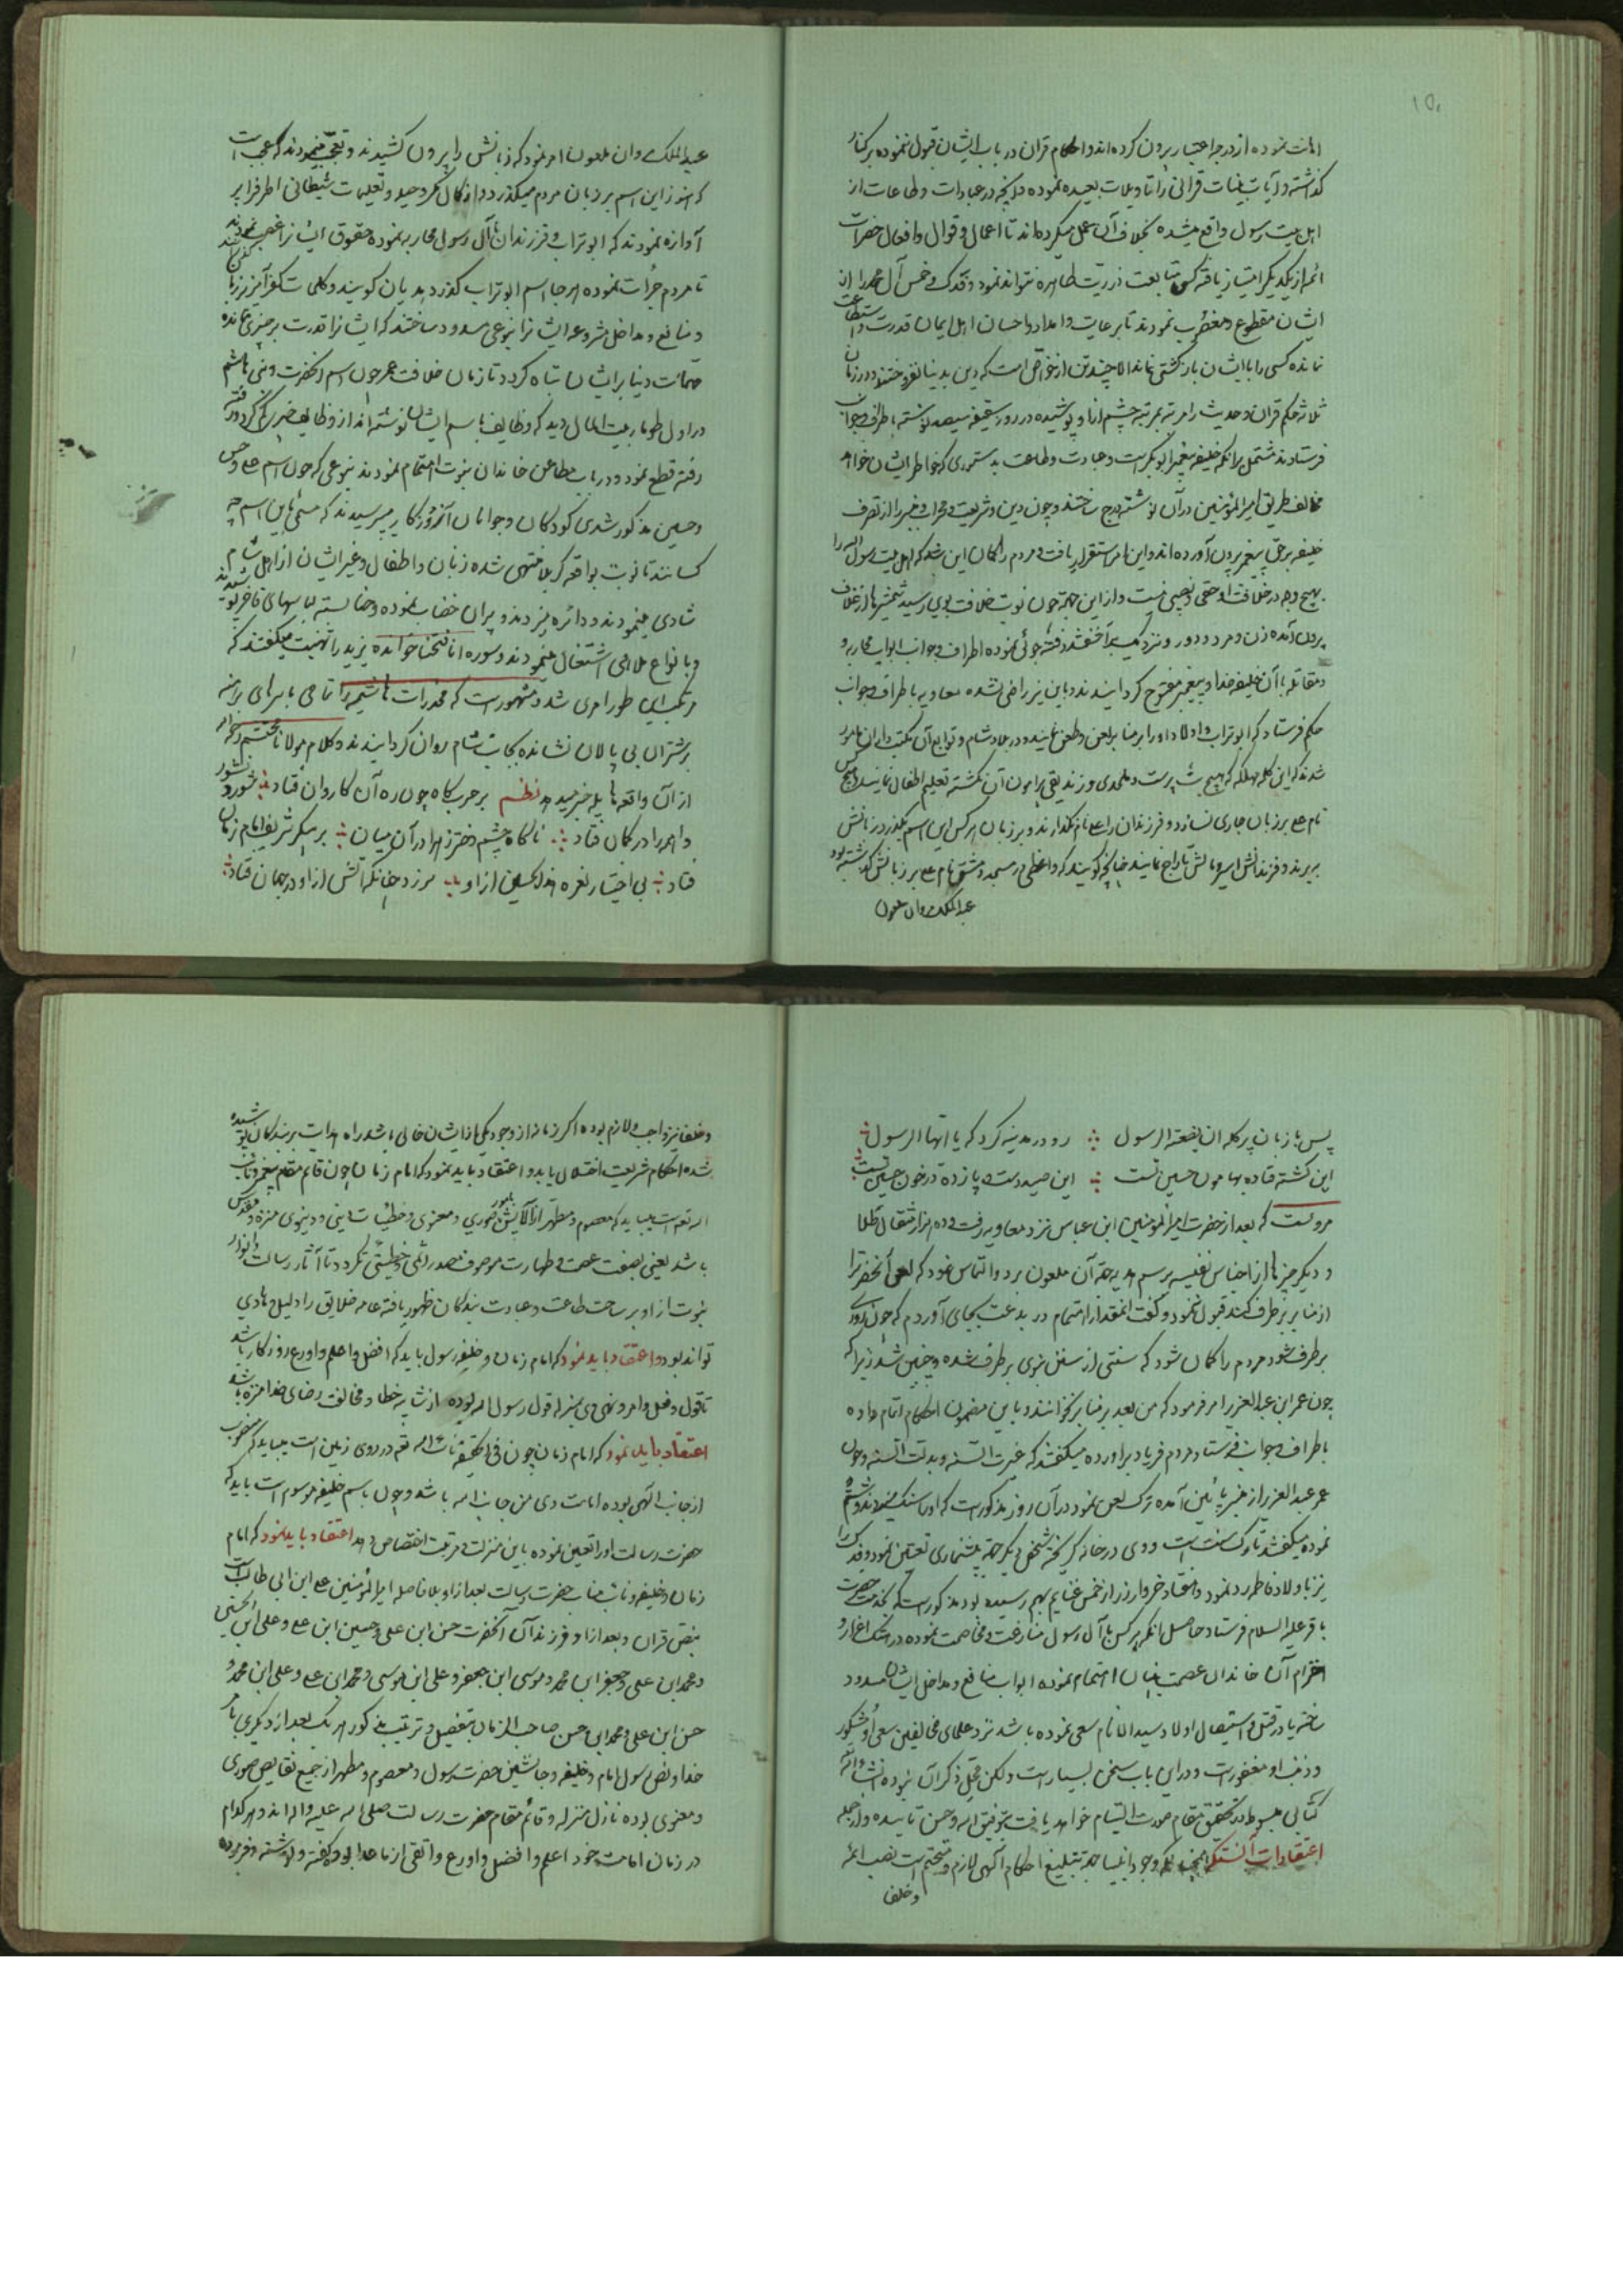 ۱۵۰
امانت نموده از درجه اعتبار بیرون کرده‌اند و احکام قران در باب ایشان قبول ننموده بر کنار
گذاشته و آیات بینات قرانی را تاویلات بعیده نموده و آنچه در عبادات و طاعات از
اهل بیت رسول واقع میشده بخلاف آن عمل میکرده‌اند تا اعمال و اقوال و افعال حضرات
ائمه از یکدیگر امتیاز یافته کس متابعت ذریت طاهره نتواند نمود و فدک و خمس آل محمد را از
ایشان مقطوع و مغضوب نمودند تا بر عایت و امداد و احسان اهل ایمان قدرت و استطاعت
نمانده کسی را با ایشان بازگشتی نماند الا چند تن از خواص امت که دین بدنیا نفروختند و در زمان
ثلاثه حکم قران و حدیث را مرتبه بمرتبه چشم ازان پوشیده در روز سقیفه نوشته باطراف و جوانب
فرستادند مشتمل بر آنکه خلیفه پیغمبر ابوبکر است و عبادت و طاعت بدستوری که خواطر ایشان خواهد
مخالف طریق امیرالمؤمنین در آن نوشته درج ساختند و چون دین و شریعت و محراب و منبر را از تصرف
خلیفه بر حق پیغمبر بیرون آورده‌اند و این امر استقرار یافت و مردم را گمان این شد که اهل بیت رسول الله را
بهیچ وجه در خلافت او حقی و نصیبی نیست و از این جهة چون نوبت خلافت بوی رسید شمشیرها از غلاف
بیرون آمده زن و مرد و دور و نزدیک فتنه جوئی نموده اطراف و جوانب ابواب محاربه و
و مقاتله با آن خلیفه خدا و پیغمبر مفتوح گردانیدند و باین نیز راضی نشده معاویه باطراف و جوانب
حکم فرستاد که ابوتراب و اولاد او را بر منابر لعن و طعن نمایند و در بلاد شام و توابع آن مکتب داران مامور
شدند که این کلمه مهلکه که هیچ بت پرست و ملحدی و زندیقی پیرامون آن نگشته تعلیم اطفال نمایند و هیچکس
نام علی بر زبان جاری نسازد و فرزندان را علی نام نگذارند و بر زبان هر کس این اسم بگذرد زبانش
ببرند و فرزندانش اسیر و مالش تاراج نمایند چنانچه گویند که واعظی در مسجد دمشق نام علی بر زبانش گذشته بود
عبدالملک مروان ملعون
عبدالملک مروان ملعون امر نمود که زبانش را بیرون کشیدند و تعجب مینمودند که عجب است
که هنوز این اسم بر زبان مردم میگذرد و از کمال مکر و حیله و تعلیمات شیطانی اطراف را پر
آوازه نمودند که ابوتراب و فرزندان با آل رسول محاربه نموده حقوق ایشانرا غصب نمودند
تا مردم جرات نموده هر جا اسم ابوتراب گذرد هذیان گویند و کلمات کفرآمیز بر زبان
و منافع و مداخل مشروعه ایشانرا بنوعی مسدود ساختند که ایشانرا قدرت بر چیزی نمانده
مهمات دنیا بر ایشان تباه گردد تا زمان خلافت عمر چون اسم آنحضرت و بنی هاشم
در اول طومار بیت المال دید که وظایف باسم ایشان نوشته‌اند از وظایف
رفته قطع نمود و در باب مطاعن خاندان نبوت اهتمام نمودند بنوعی که چون اسم علی و حسن
و حسین مذکور شدی کودکان و جوانان آنروزگار میپرسیدند که مسمی باین اسم چه
کسانند تا نوبت بواقعه کربلا منتهی شده زنان و اطفال و غیر ایشان از اهل شام
شادی مینمودند و دائره میزدند و پیران خضاب نموده و حنا بسته لباسهای فاخر پوشیدند
و بانواع ملاهی اشتغال مینمودند و سوره انا فتحنا خوانده یزید را تهنیت میگفتند که
مرتکب این طور امری شد و مشهور است که مخدرات هاشمیه را تمامی با سرهای برهنه
بر شتران بی پالان نشانده بجانب شام روان گردانیدند و کلام مولانا محتشم
از آن واقعه هایله خبر میدهد نظم بر حربگاه چون ره آن کاروان فتاد شور و نشور
واهمه را در گمان فتاد ناگاه چشم دختر زهرا در آن میان بر پیکر شریف امام زمان
فتاد بی اختیار نعره هذا حسین از او سر زد چنانکه آتش از او در جهان فتاد
پس با زبان پر گله ان بضعة الرسول رو در مدینه کرد که یا ایها الرسول
این کشته فتاده بهامون حسین تست این صید دست و پا زده در خون حسین تست
مرویست که بعد از حضرت امیرالمؤمنین ابن عباس نزد معاویه رفت و ده هزار مثقال طلا
و دیگر چیزها از اجناس نفیسه برسم هدیه جهة آن ملعون برد و التماس نمود که لعن آنحضرترا
از منابر برطرف کند قبول ننمود و گفت انقدر اهتمام در بدعت بجای آوردم که چون
برطرف شود مردم را گمان شود که سنتی از سنن نبوی برطرف شده و چنین شد زیرا که
چون عمر ابن عبدالعزیز امر فرمود که من بعد بر منابر نخوانند و باین مضمون احکام اتمام داده
باطراف و جوانب فرستاد مردم فریاد برآورده میگفتند که غیرت السنه و بدلت السنه و چون
عمر عبدالعزیز از منبر پائین آمده ترک لعن نمود در آن روز مذکور است که او را سنک میزدند و شتم
نموده میگفتند تارک سنت است و وی در خانه گریخته شخص دیگر جهة پیشنمازی تعیین نمود و فدک را
نیز باولاد فاطمه رد نمود و هفتاد خروار زر از خمس غنایم بهم رسیده بود مذکور است که بخدمت حضرت
باقر علیه السلام فرستاد حاصل انکه هر کس با آل رسول منازعت و مخاصمت نموده در هتک اعزاز و
احترام آن خاندان عصمت بنیان اهتمام نموده ابواب منافع و مداخل ایشان مسدود
ساخته یا در قتل و استیصال اولاد سید الانام سعی نموده باشد نزد علمای مخالفین سعی او مشکور
و ذنب او مغفور است و در این باب سخن بسیار است ولکن محل ذکر آن نبوده انشاءالله
کتابی مبسوط در تحقیق مقام صورت التیام خواهد یافت بتوفیق الله و حسن تاییده و از جمله
اعتقادات آنستکه وجود انبیا جهة تبلیغ احکام الهی لازم و متحتم است نصب ائمه
و خلفا
و خلفا نیز واجب و لازم بوده اگر زمانه از وجود یکی از ایشان خالی باشد راه هدایت بر بندگان پوشیده
شده احکام شریعت اختلال یابد و اعتقاد باید نمود که امام زمان چون قایم مقام پیغمبر و نایب
الله تعالی است میباید که معصوم و مطهر از آلایش صوری و معنوی و خطیئات دینی و دنیوی منزه و مقدس
باشد یعنی بصفت عصمت و طهارت موصوف مصدر اثمی و خطیئتی نگردد تا آثار رسالت و انوار
نبوت از او بر ساحت طاعت و عبادت بندگان ظهور یافته عامه خلایق را دلیل و هادی
تواند بود و اعتقاد باید نمود که امام زمان و خلیفه رسول باید که افضل و اعلم و اورع روزگار باشد
تا قول و فعل و امر و نهی وی بمنزله قول رسول الله بوده از شایبه خطا و مخالفت رضای خدا منزه باشد
اعتقاد باید نمود که امام زمان چون فی الحقیقه نایب الله تعالی در روی زمین است میباید که منصوب
از جانب الهی بوده امامت وی من جانب الله باشد و چون باسم خلیفه موسوم است باید که
حضرت رسالت او را تعیین نموده باین منزلت و مرتبت اختصاص دهد اعتقاد باید نمود که امام
زمان و خلیفه و نایب مناب حضرت رسالت بعد از او بلا فاصله امیرالمؤمنین علی ابن ابی طالب است
بنص قران و بعد از او فرزند آن آنحضرت حسن ابن علی و حسین ابن علی و علی ابن الحسین
و محمد ابن علی و جعفر ابن محمد و موسی ابن جعفر و علی ابن موسی و محمد ابن علی و علی ابن محمد و
حسن ابن علی و محمد ابن حسن صاحب الزمان بتفصیل و ترتیب مذکور هر یک بعد از دیگری بامر
خدا و نص رسول امام و خلیفه و جانشین حضرت رسول و معصوم و مطهر از جمیع نقایص صوری
و معنوی بوده نازل منزله و قائم مقام حضرت رسالت صلی الله علیه و اله اند و هر کدام
در زمان امامت خود اعلم و افضل و اورع و اتقی از ما عدا بوده